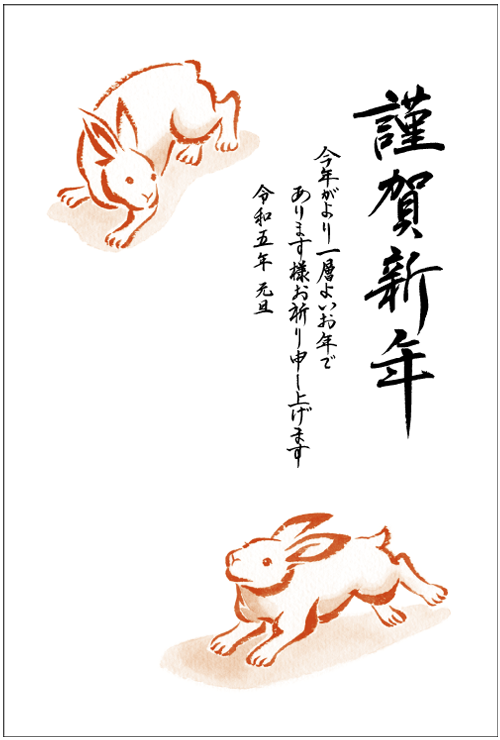 謹賀新年
今年がより一層よいお年で
あります様お祈り申し上げます
令和五年 元旦